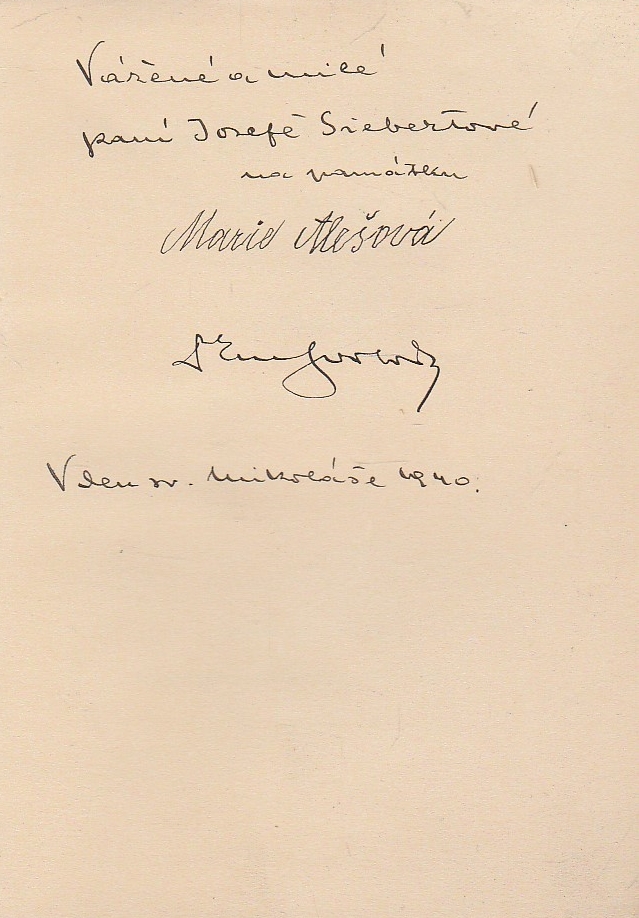 Vážené a milé
paní Josefě Siebertové
na památku
Marie Alešová
V den sv. Mikoláše 1940.